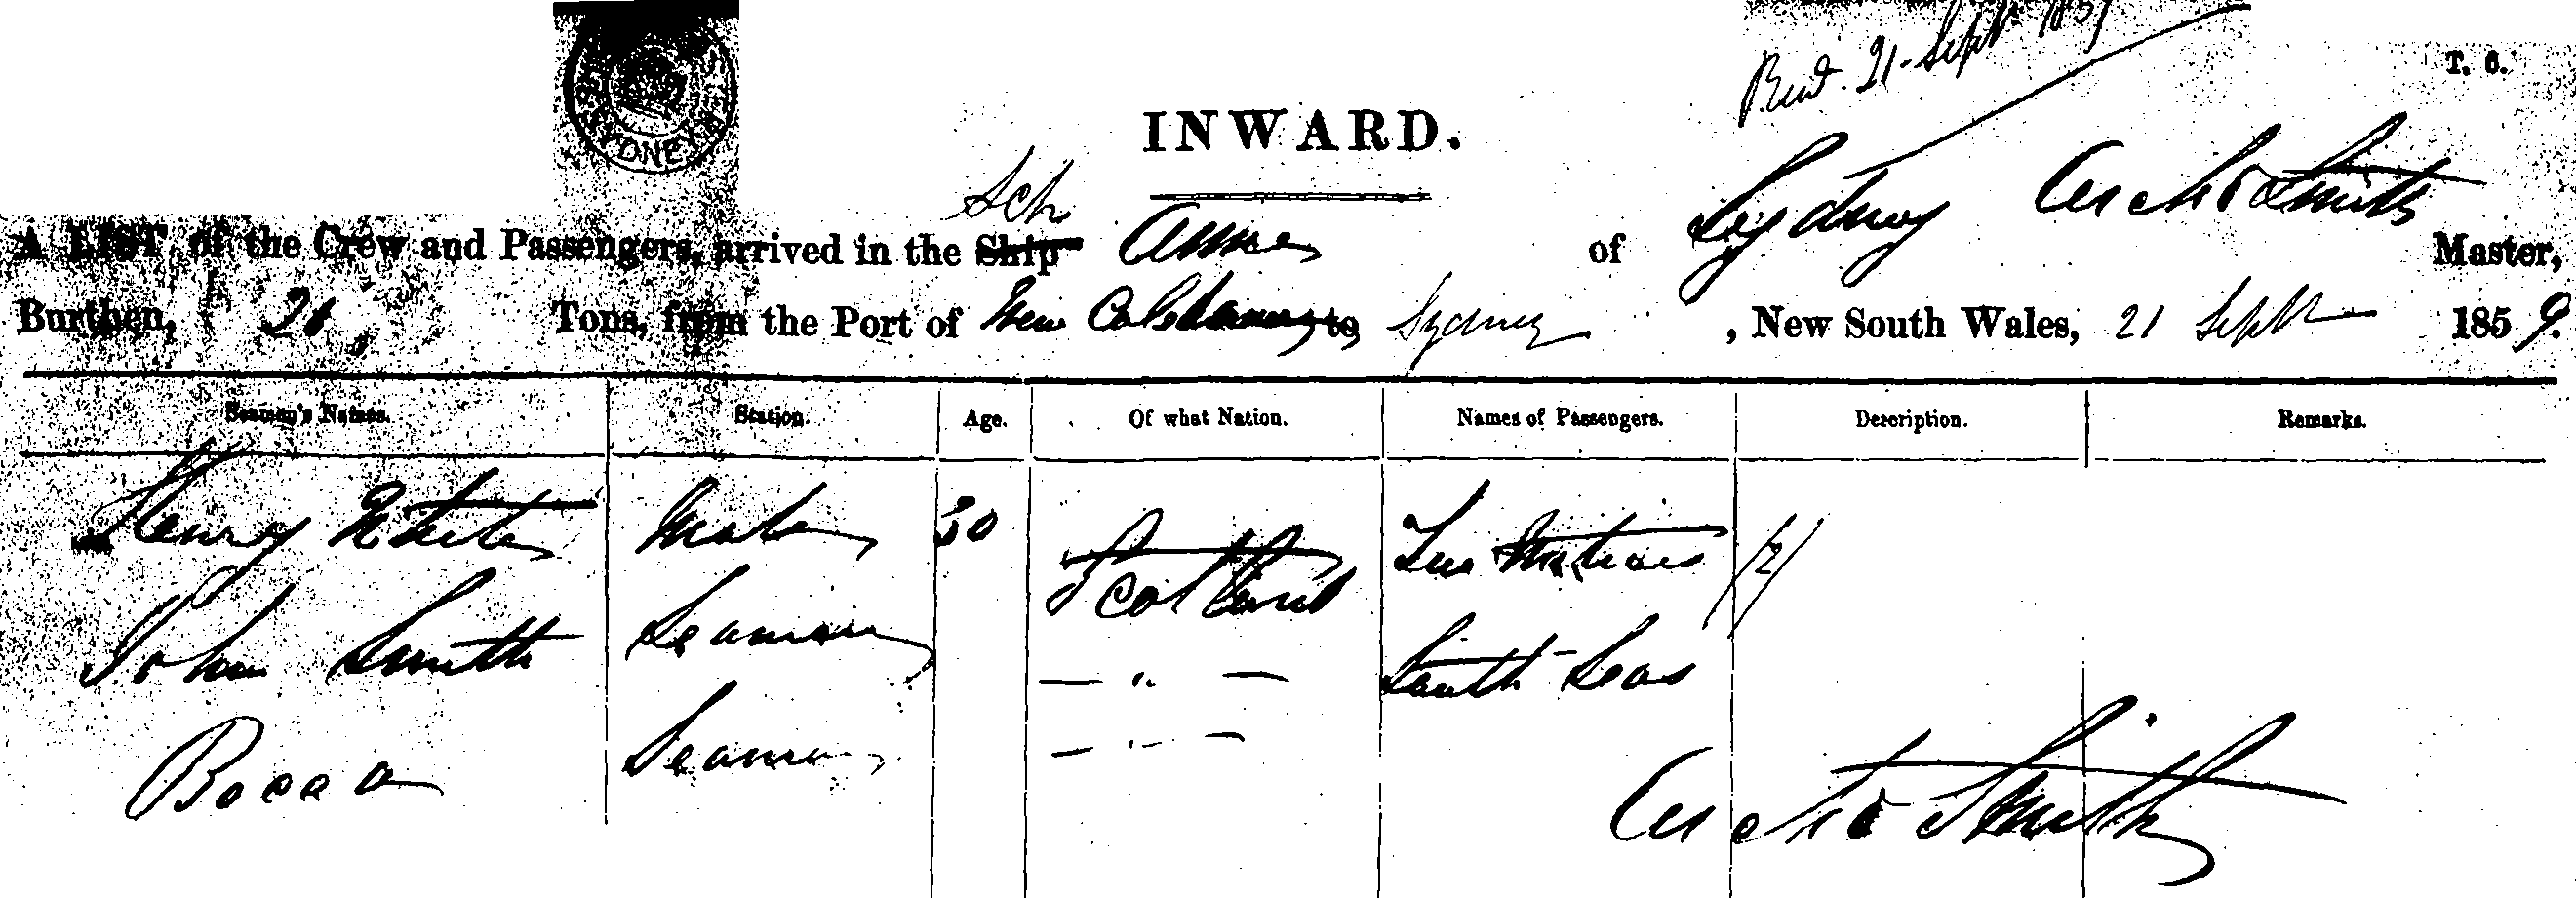 SYDNEY
Recd. 21 Sept 1859
T. 6.
INWARD.
Sch
A LIST of the Crew and Passengers, arrived in the Ship Anne of Sydney Archd Smith Master,
Burthen, Tons, from the Port of New Caledonia to Sydney, New South Wales, 21 Sept 1859.
Seamen's Names. Station. Age. Of what Nation. Names of Passengers. Description. Remarks.
Henry White Mate 30 Scotland Two Natives /2/
John Smith Seaman — " — South Seas
Bocca Seaman — " —
Archd Smith